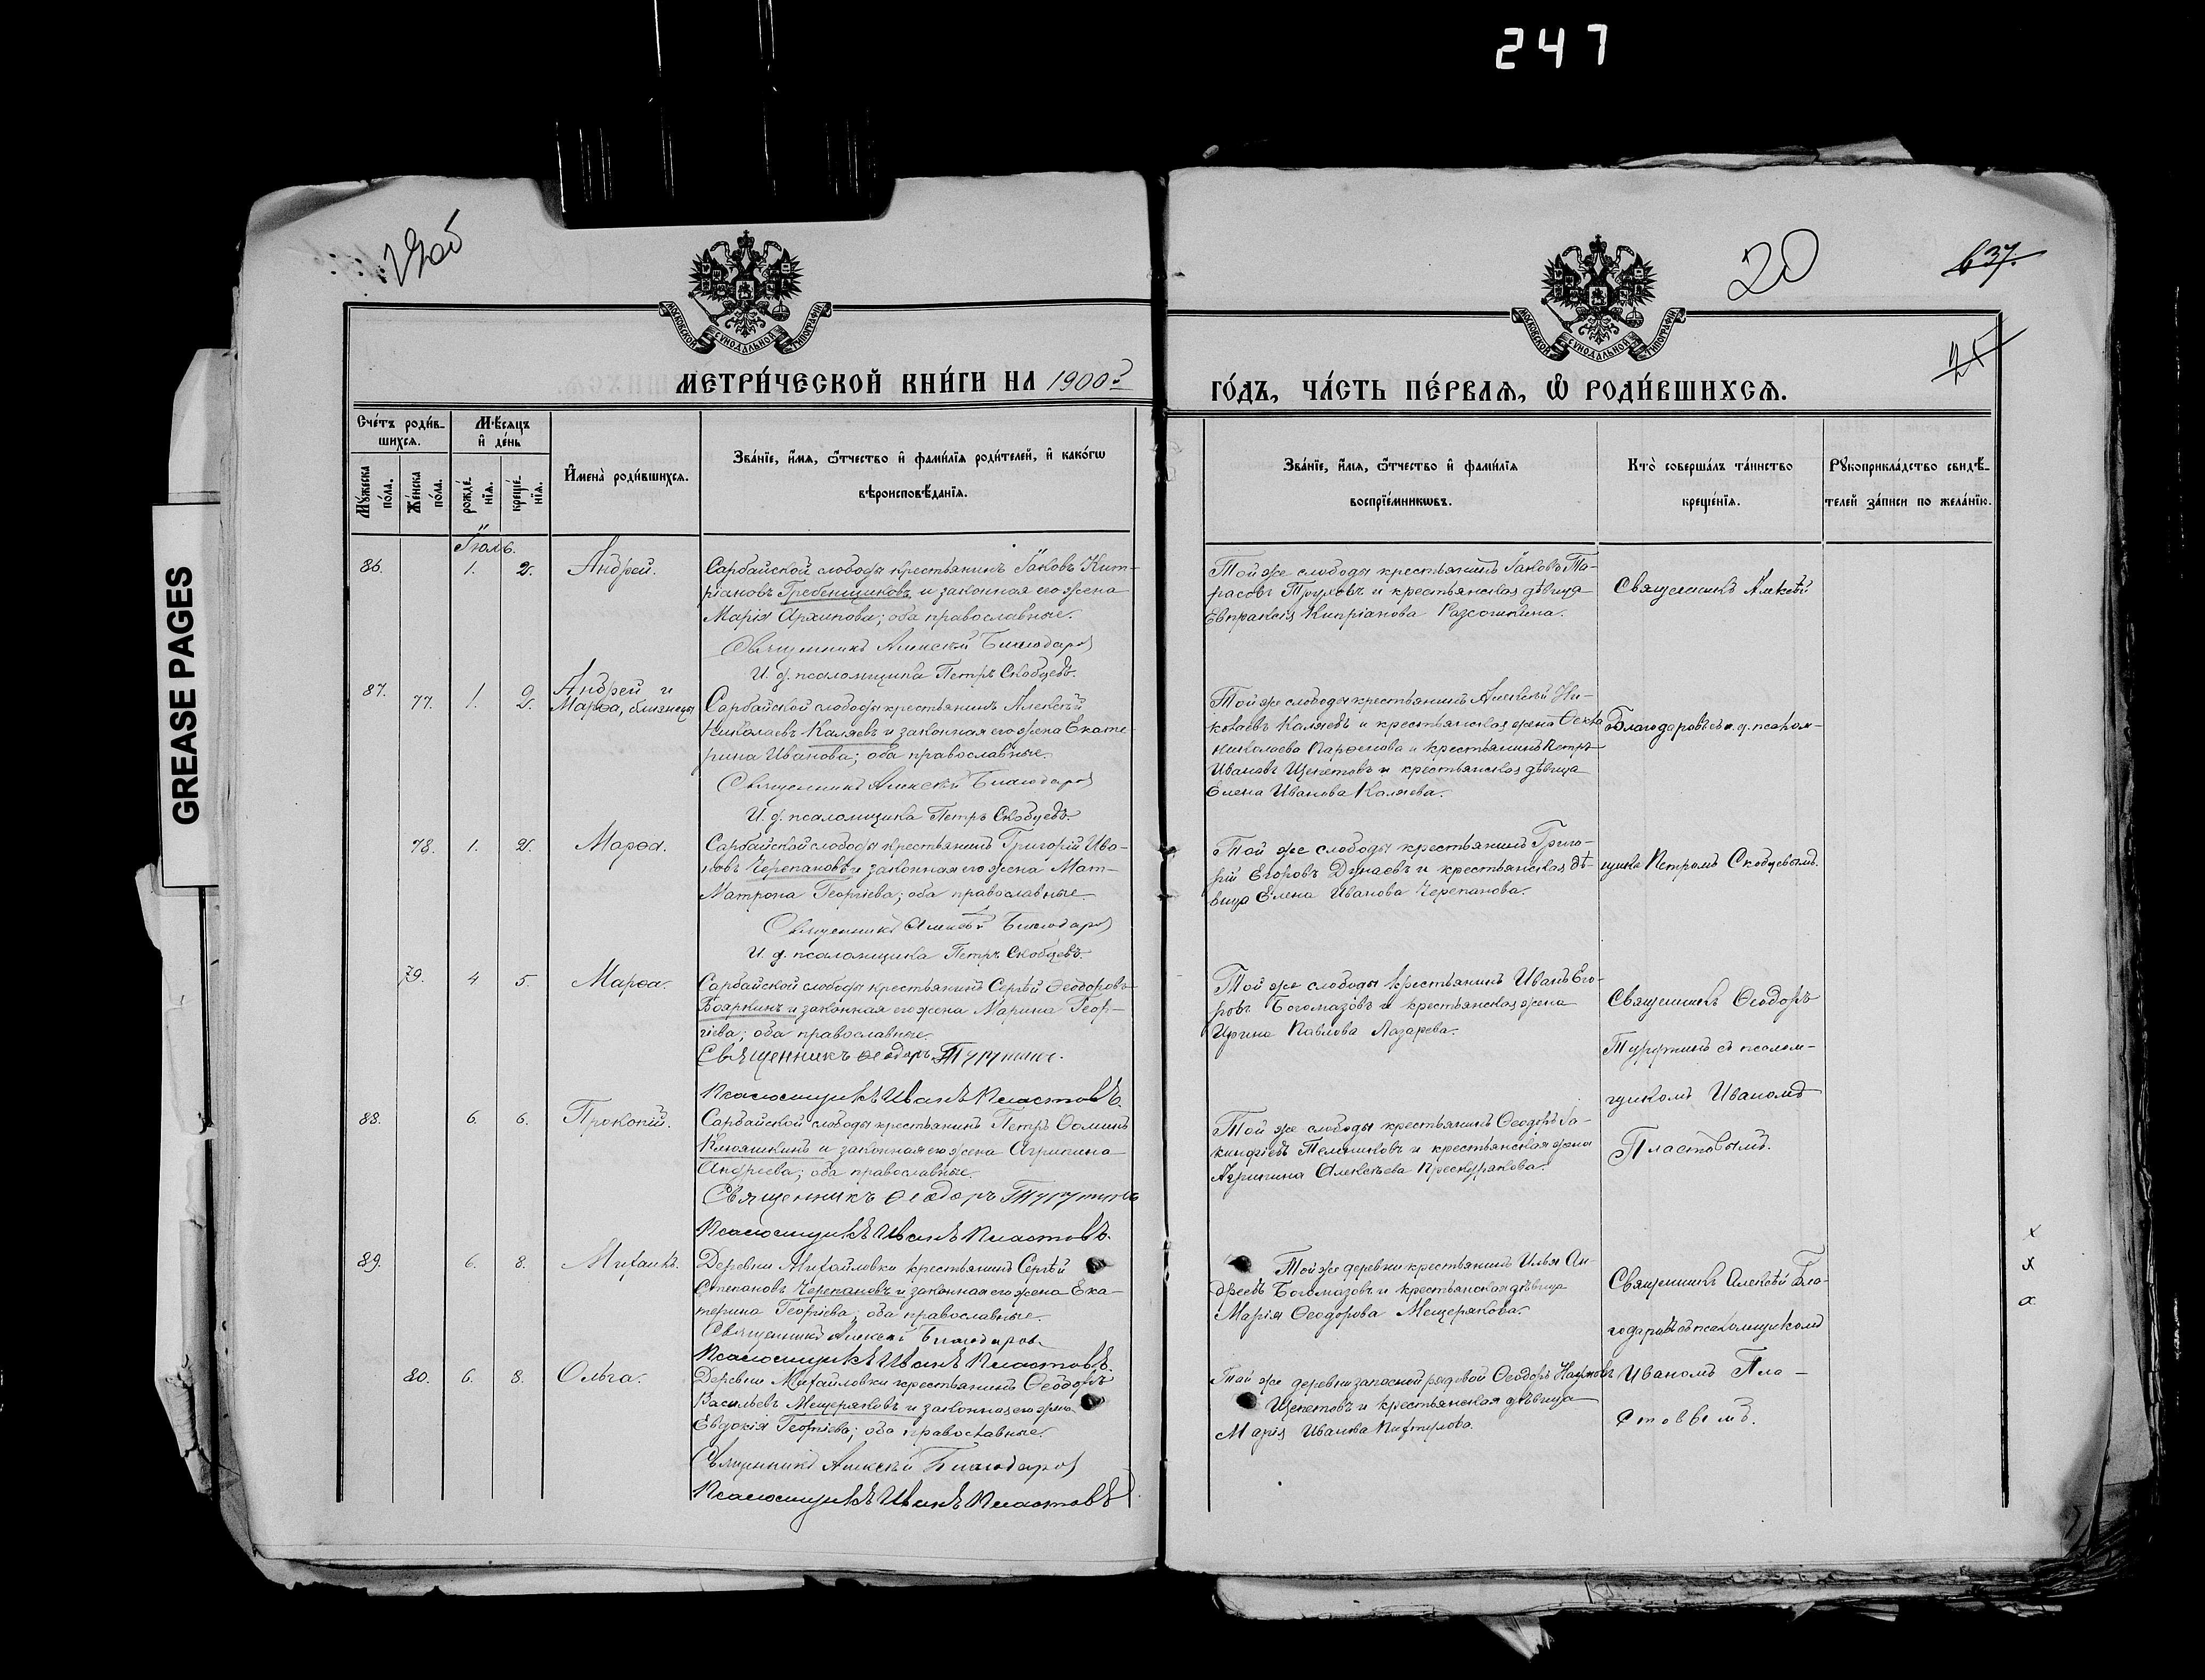 247
GREASE PAGES
20
637.
МОСКОВСКОЙ СѴНОДАЛЬНОЙ ТИПОГРАФІИ
МОСКОВСКОЙ СѴНОДАЛЬНОЙ ТИПОГРАФІИ
МЕТРИ́ЧЕСКОЙ КНИ́ГИ НА 1900й
ГО́ДЪ, ЧА́СТЬ ПЕ́РВАѦ, Ѽ РОДИ́ВШИХСѦ.
Сче́тъ роди́в-
шихсѧ.
Мꙋ́жеска по́ла.
Же́нска по́ла.
Мѣ́сѧцъ
и҆ де́нь
рожде́нїѧ.
креще́нїѧ.
И҆мена̀ роди́вшихсѧ.
Зва́нїе, и҆́мѧ, ѻ҆́тчество и҆ фами́лїѧ роди́телей, и҆ како́гѡ
вѣроисповѣ́данїѧ.
Зва́нїе, и҆́мѧ, ѻ҆́тчество и҆ фами́лїѧ
воспрїе́мникѡвъ.
Кто̀ соверша́лъ та́инство
креще́нїѧ.
Рꙋкоприкла́дство свидѣ́-
телей за́писи по жела́нїю.
Іюль.
86. 1. 2. Андрей.
Сарбайской слободы крестьянинъ Іаковъ Кип-
ріановъ Гребенщиковъ и законная его жена
Марія Архипова; оба православные.
Священникъ Алексѣй Благодаров
И. д. псаломщика Петръ Скобцевъ.
Той же слободы крестьянинъ Іаковъ Та-
расовъ и крестьянская дѣвица
Евпраксія Кипріанова
Священникъ Алексѣй
87. 77. 1. 2. Андрей и
Марѳа, близнецы
Сарбайской слободы крестьянинъ Алексѣй
Николаевъ Каляевъ и законная его жена Екате-
рина Иванова; оба православные.
Священникъ Алексѣй Благодаров
И. д. псаломщика Петръ Скобцевъ.
Той же слободы крестьянинъ Алексѣй Ни-
колаевъ Каляевъ и крестьянская жена Ѳекла
Николаева Парѳенова и крестьянинъ Петръ
Ивановъ Щепетовъ и крестьянская дѣвица
Елена Иванова Каляева.
Благодаровъ съ и. д. псалом-
78. 1. 2. Марѳа.
Сарбайской слободы крестьянинъ Григорій Ива-
новъ Черепановъ и законная его жена Мат-
Матрона Георгіева; оба православные
Священникъ Алексѣй Благодаров
И. д. псаломщика Петръ Скобцевъ.
Той же слободы крестьянинъ Григо-
рій Егоровъ Дунаевъ и крестьянская дѣ-
вица Елена Иванова Черепанова.
щика Петромъ Скобцевымъ.
79. 4 5. Марѳа.
Сарбайской слободы крестьянинъ Сергѣй Ѳеодоровъ
Бояркинъ и законная его жена Марина Геор-
гіева; оба православные.
Священникъ Ѳеодоръ
Псаломщикъ Иванъ Пластовъ.
Той же слободы крестьянинъ Иванъ Его-
ровъ Богомазовъ и крестьянская жена
Ирина Павлова Лазарева.
Священникъ Ѳеодоръ
съ псалом-
щикомъ Иваномъ
Пластовымъ.
88. 6. 6. Прокопій.
Сарбайской слободы крестьянинъ Петръ Ѳоминъ
Клюяшкинъ и законная его жена Агрипина
Андреева; оба православные.
Священникъ Ѳеодоръ
Псаломщикъ Иванъ Пластовъ.
Той же слободы крестьянинъ Ѳеодоръ Іа-
кинфіевъ и крестьянская жена
Агрипина Алексѣева
89. 6. 8. Михаилъ.
Деревни Михайловки крестьянинъ Сергѣй
Степановъ Черепановъ и законная его жена Ека-
терина Георгіева; оба православные.
Священникъ Алексѣй Благодаров
Псаломщикъ Иванъ Пластовъ.
Той же деревни крестьянинъ Илья Ан-
дреевъ Богомазовъ и крестьянская дѣвица
Марія Ѳеодорова Мещерякова.
Священникъ Алексѣй Бла-
годаровъ съ псаломщикомъ
80. 6. 8. Ольга.
Деревни Михайловки крестьянинъ Ѳеодоръ
Васильевъ Мещеряковъ и законная его жена
Евдокія Георгіева; оба православные.
Священникъ Алексѣй Благодаров
Псаломщикъ Иванъ Пластовъ
Той же деревни запасной рядовой Ѳеодоръ Наумовъ
Щепетовъ и крестьянская дѣвица
Марія Иванова
Иваномъ Пла-
стовымъ.
х
х
а